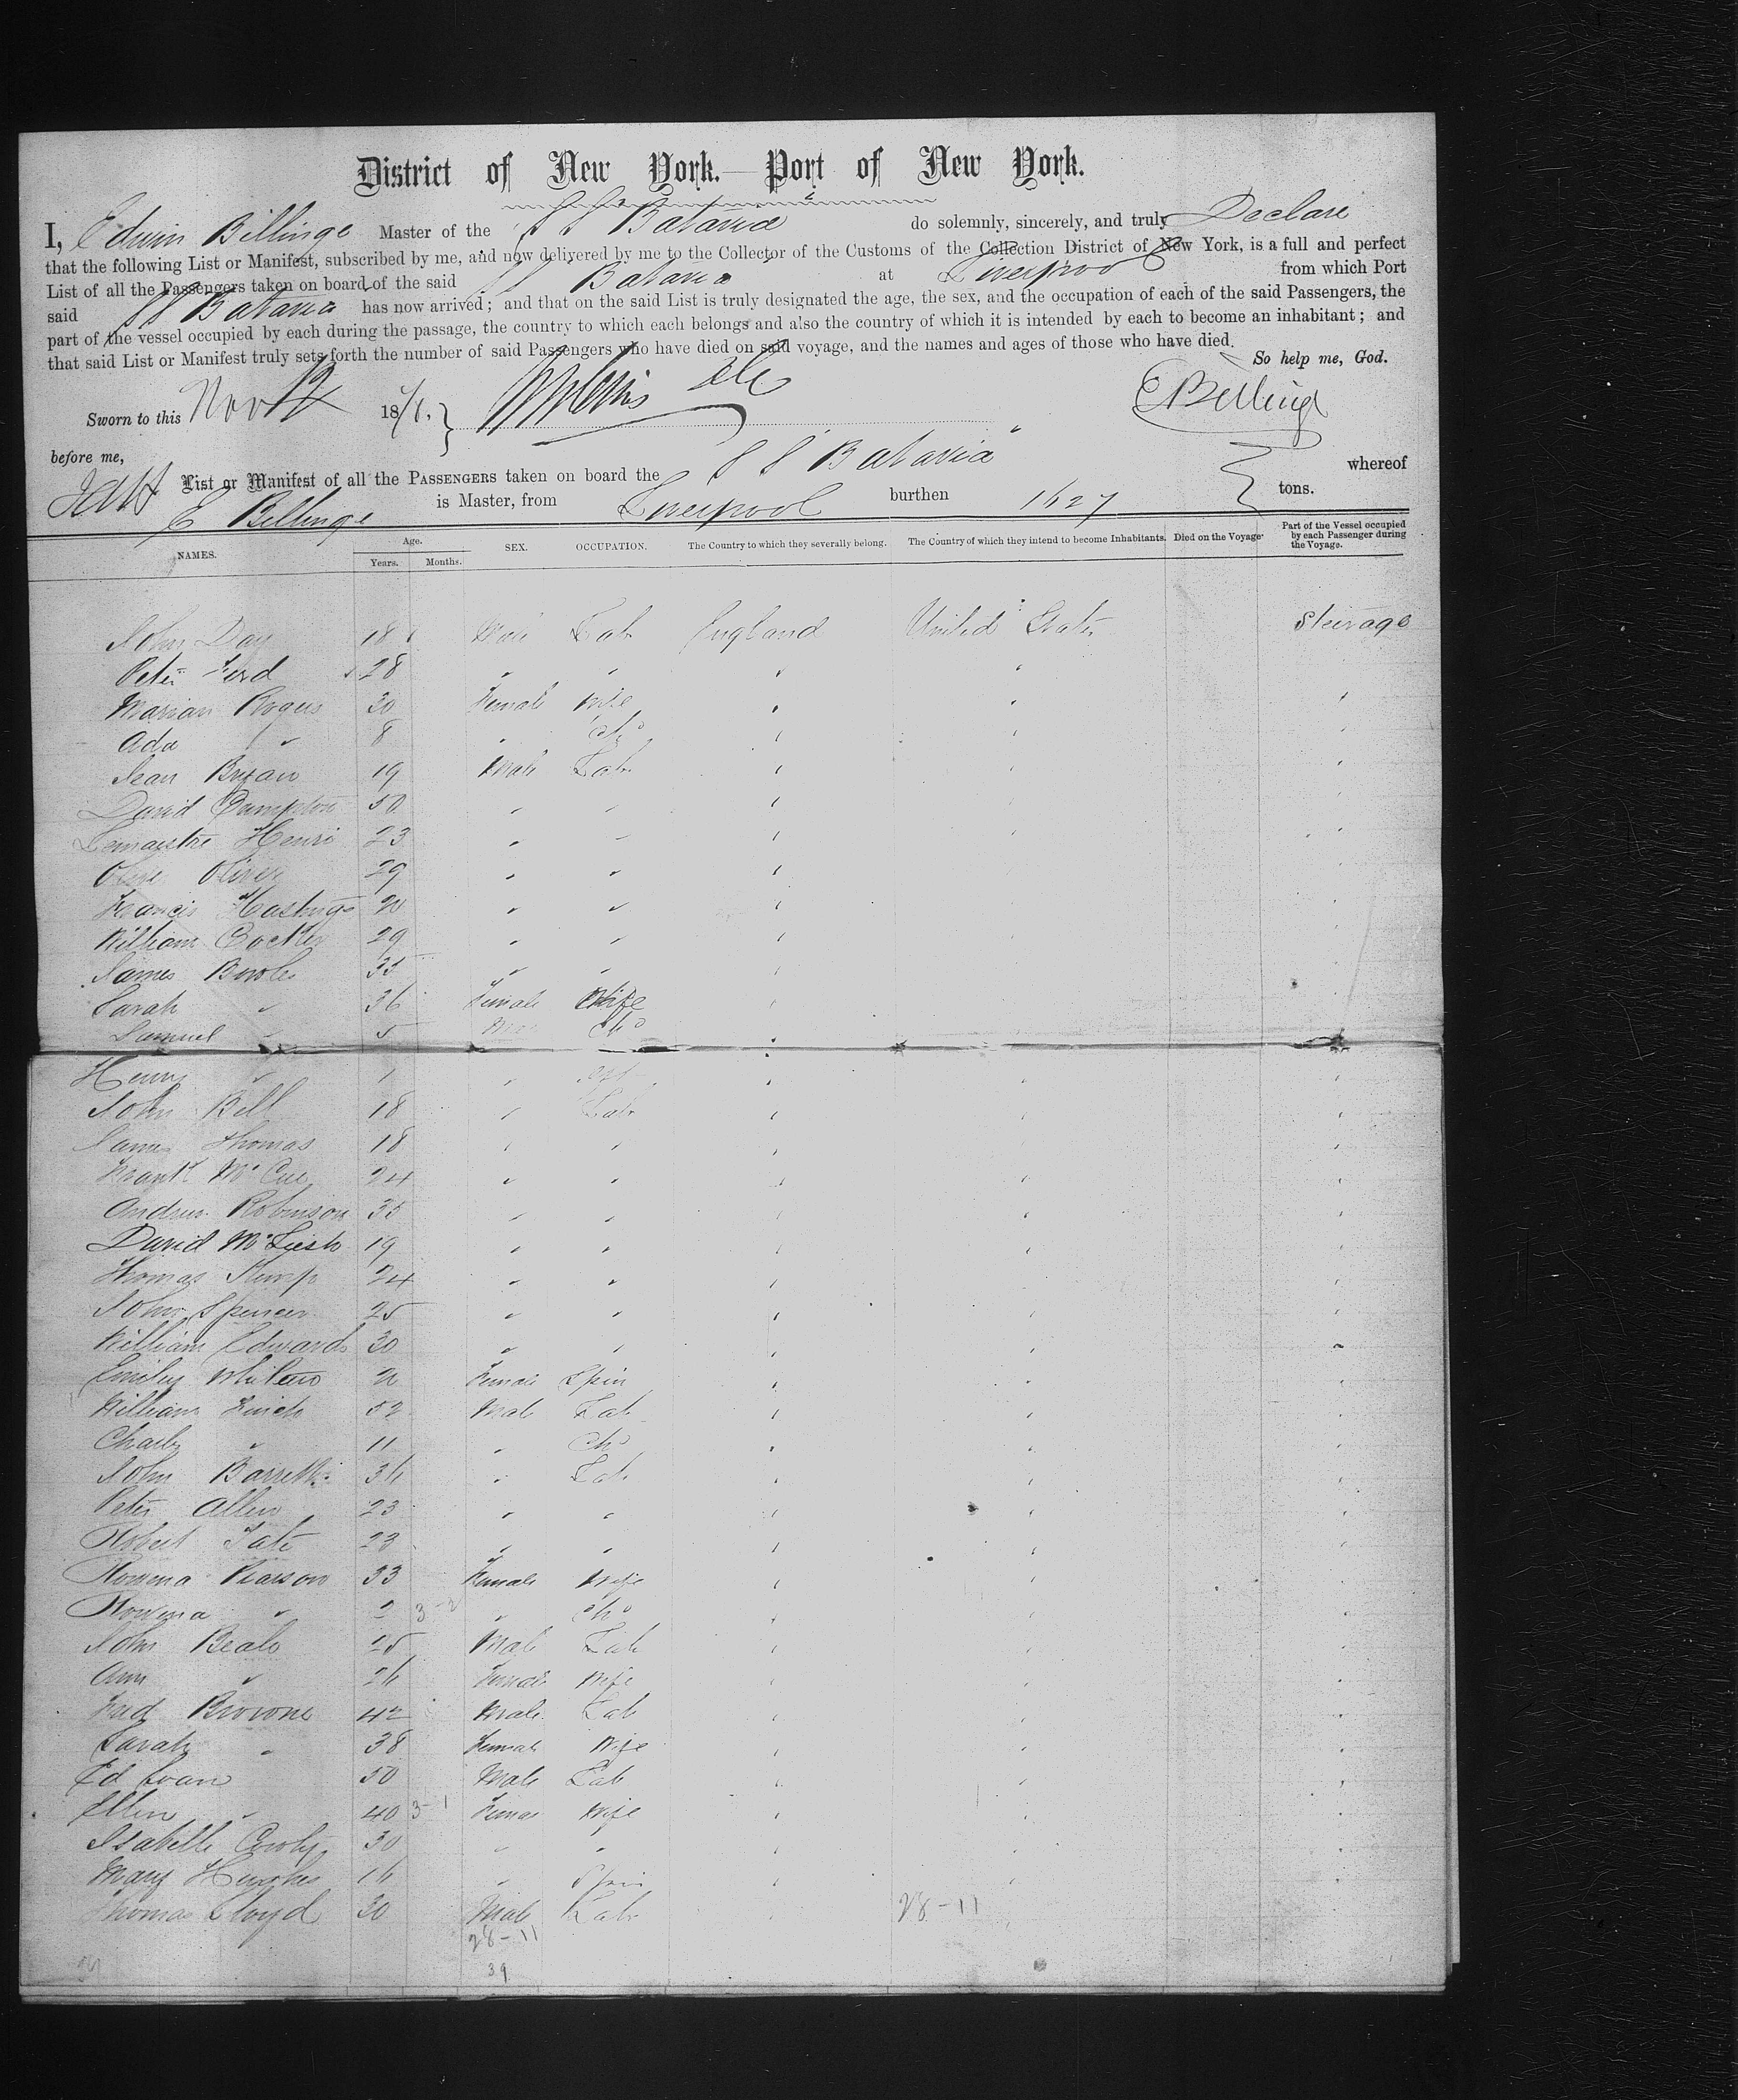 District of New York.—Port of New York.
I, Edwin Billinge Master of the S S "Batavia" do solemnly, sincerely, and truly Declare
that the following List or Manifest, subscribed by me, and now delivered by me to the Collector of the Customs of the Collection District of New York, is a full and perfect
List of all the Passengers taken on board of the said S S Batavia at Liverpool from which Port
said S S Batavia has now arrived; and that on the said List is truly designated the age, the sex, and the occupation of each of the said Passengers, the
part of the vessel occupied by each during the passage, the country to which each belongs and also the country of which it is intended by each to become an inhabitant; and
that said List or Manifest truly sets forth the number of said Passengers who have died on said voyage, and the names and ages of those who have died.
So help me, God.
Sworn to this Nov 18 E Billinge
before me,
List or Manifest of all the PASSENGERS taken on board the S S "Batavia" whereof
E Billinge is Master, from Liverpool burthen 1627 tons.
NAMES. Age. Years. Months. SEX. OCCUPATION. The Country to which they severally belong. The Country of which they intend to become Inhabitants. Died on the Voyage. Part of the Vessel occupied by each Passenger during the Voyage.
John Day 18 Male Lab England United States Steerage
Peter Ford 28 " " " "
Marian Rogers 30 Female Wife " " "
Ada " 8 " Chd " " "
Jean Bryan 19 Male Lab " " "
David Compton 50 " " " "
Lemaistre Henri 23 " " " " "
Oliver 29 " " "
Francis Hastings 20 " " "
William Cocker 29 " " "
James Bowles 35 " " "
Sarah " 36 Female Wife "
Samuel " 5 Male Chd
Henry " 1 " "
John Bell 18 " Lab " " "
James Thomas 18 " " " " "
Frank McCue 24 " " " " "
Andrew Robinson 35 " " " " "
David McLeish 19 " " " " "
Thomas Kemp 24 " " " " "
John Spencer 25 " " " " "
William Edwards 30 " " " " "
Emily 20 Female Spin " " "
William Finch 52 Male Lab " " "
Charles " 11 " Chd " " "
John Barrett 36 " Lab " " "
Peter Allen 23 " " " " "
Robert Tate 23 " " " " "
Rowena Pearson 33 Female Wife " " "
Rowena " 2 3-2 " Chd " " "
John Beale 25 Male Lab " " "
Ann " 26 Female Wife " " "
Fred Browne 42 Male Lab " " "
Sarah " 38 Female Wife " " "
Ed Evans 50 Male Lab " " "
Ellen " 40 3-1 Female Wife " " "
Isabella 30 " " " " "
Mary Hughes 16 " Spin " " "
Thomas Lloyd 30 Male Lab " 28-11
28-11
39